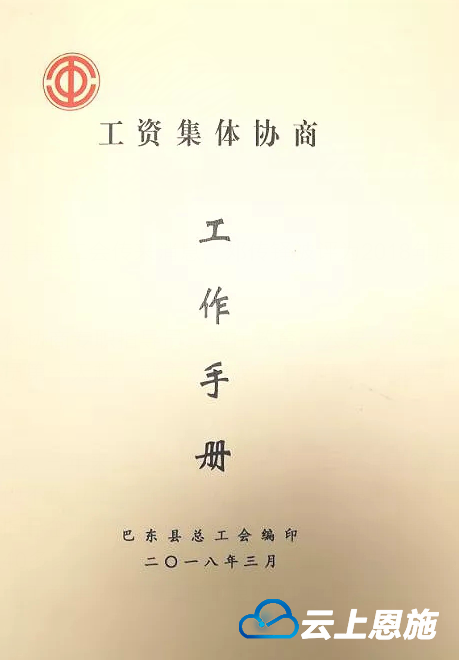 工资集体协商
工
作
手
册
巴东县总工会编印
二〇一八年三月
云上恩施